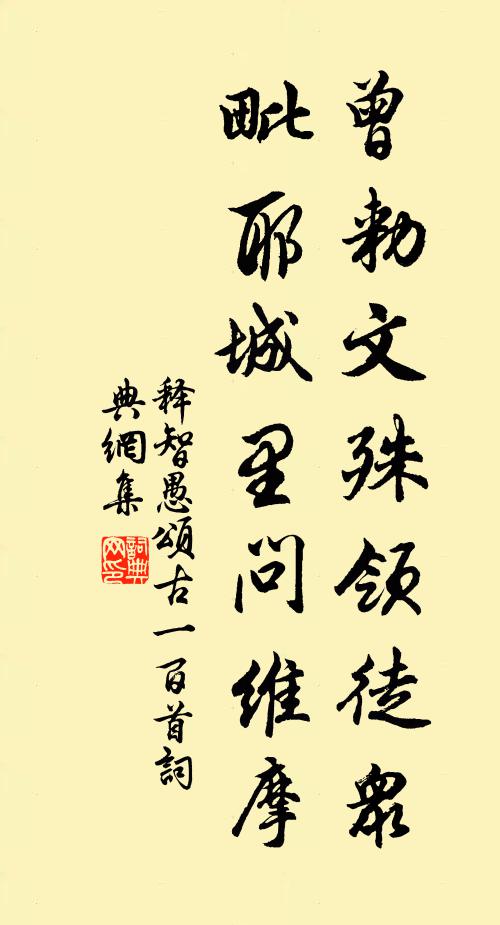 曾勅文殊領徒衆
毗耶城里問維摩
释智愚頌古一百首詞
典網集
詞典网印